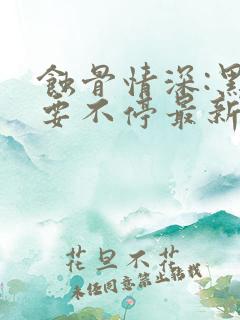 蝕骨情深:黑
要不停最新
花旦不花
未经同意禁止转载